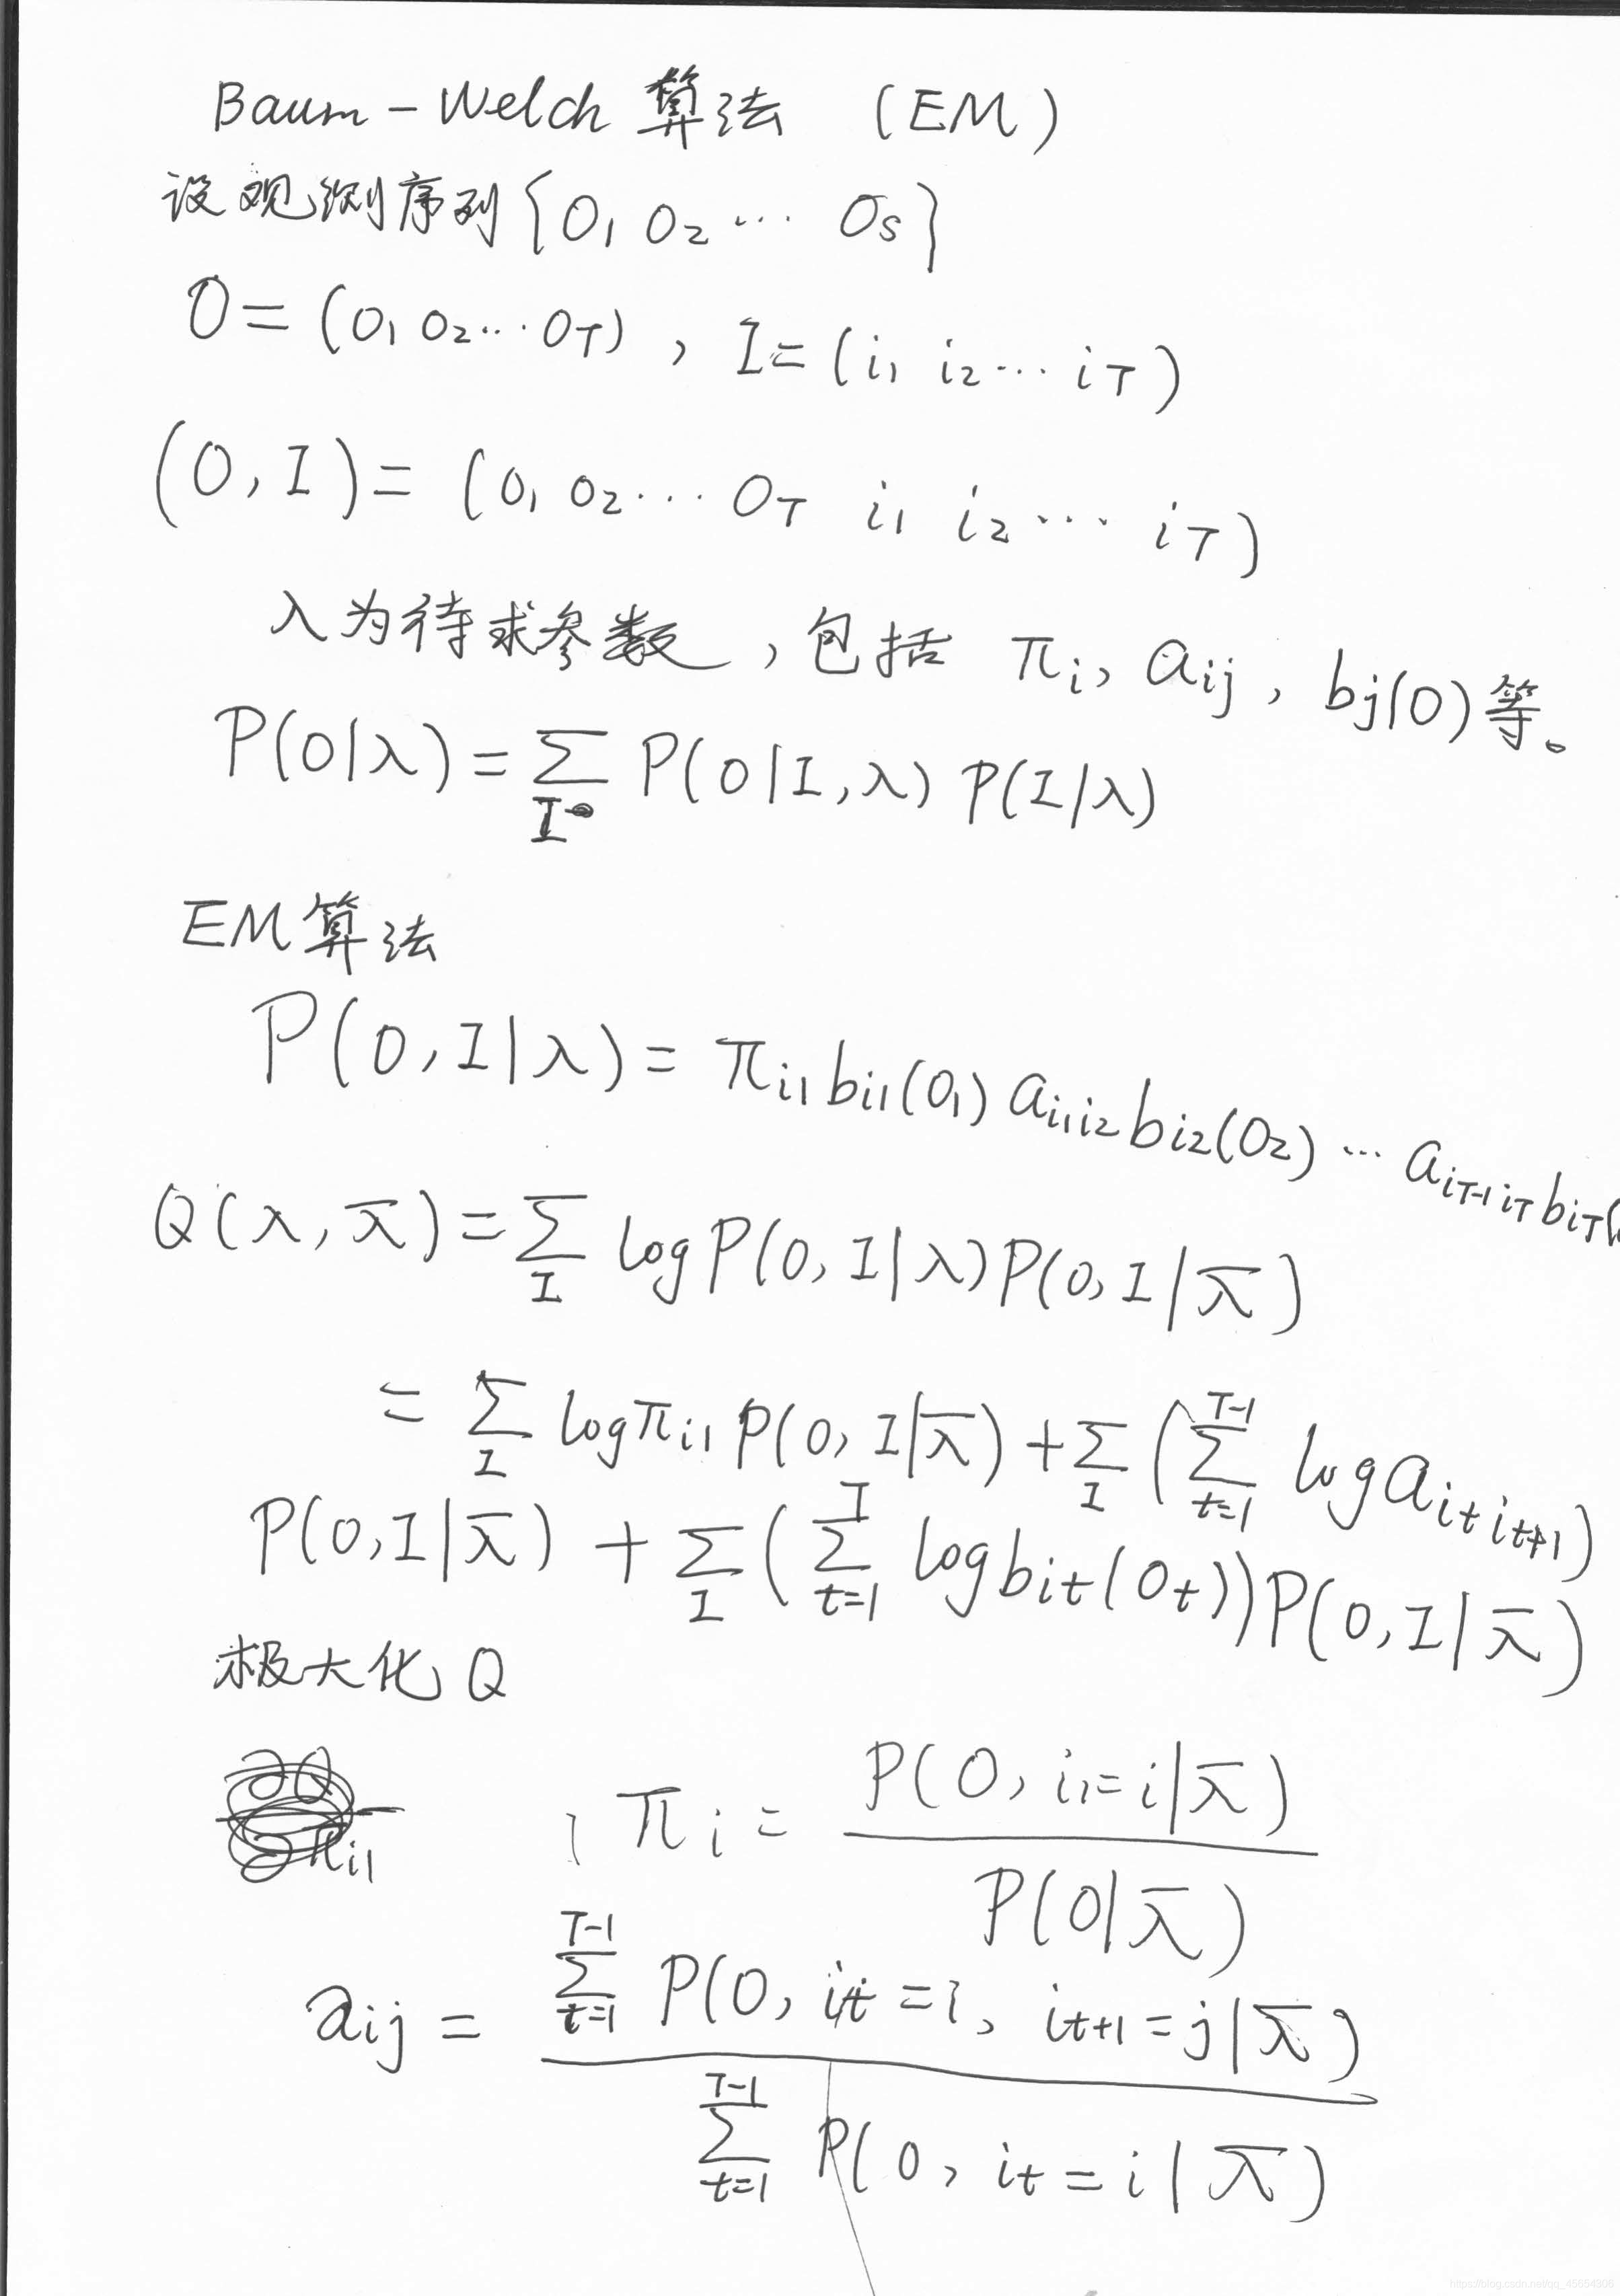 Baum-Welch 算法 (EM)
设观测序列{O₁ O₂ ⋯ Oₛ}
O=(o₁ o₂⋯o_T), I=(i₁ i₂⋯i_T)
(O,I)=(o₁ o₂⋯o_T i₁ i₂⋯i_T)
λ为待求参数,包括 π_i, a_ij, b_j(o)等。
P(O|λ)=∑_I P(O|I,λ)P(I|λ)
EM算法
P(O,I|λ)=π_{i1}b_{i1}(o₁)a_{i1i2}b_{i2}(o₂)⋯a_{iT-1 iT}b_{iT}(
Q(λ,λ̄)=∑_I logP(O,I|λ)P(O,I|λ̄)
=∑_I logπ_{i1}P(O,I|λ̄)+∑_I(∑_{t=1}^{T-1} loga_{it it+1})
P(O,I|λ̄)+∑_I(∑_{t=1}^{T} logb_{it}(o_t))P(O,I|λ̄)
极大化Q
π_i=P(O,i₁=i|λ̄)/P(O|λ̄)
a_ij=∑_{t=1}^{T-1}P(O,i_t=i,i_{t+1}=j|λ̄)/∑_{t=1}^{T-1}P(O,i_t=i|λ̄)